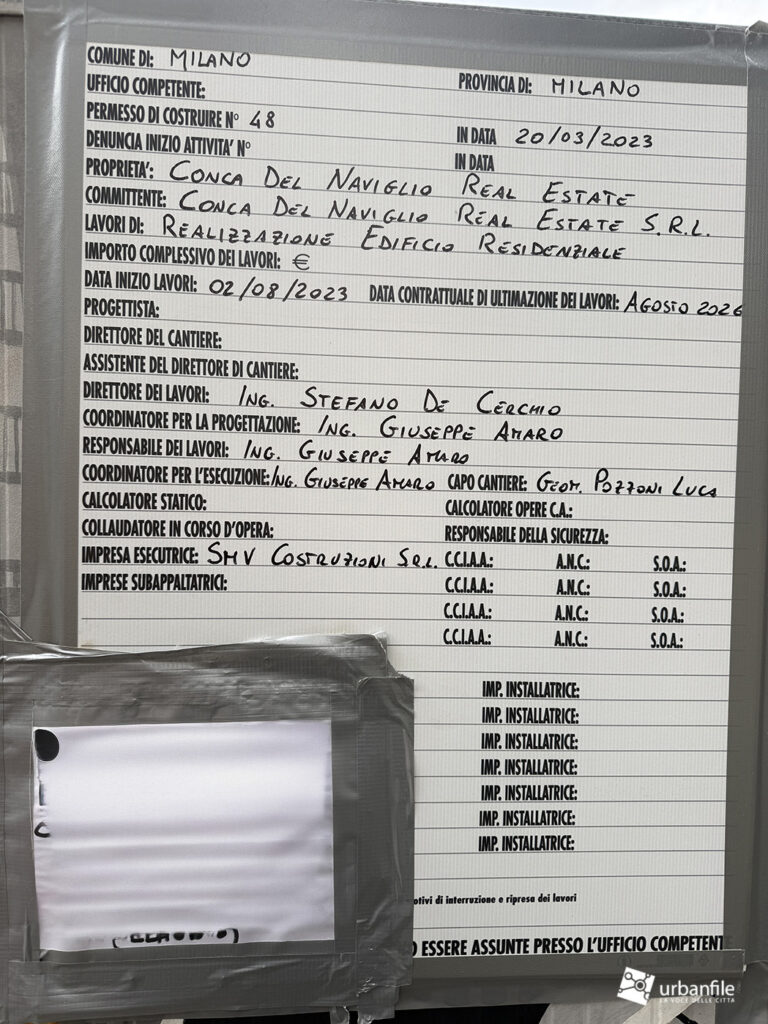 COMUNE DI: MILANO PROVINCIA DI: MILANO
UFFICIO COMPETENTE:
PERMESSO DI COSTRUIRE N° 48 IN DATA 20/03/2023
DENUNCIA INIZIO ATTIVITA' N° IN DATA
PROPRIETA': CONCA DEL NAVIGLIO REAL ESTATE
COMMITTENTE: CONCA DEL NAVIGLIO REAL ESTATE S.R.L.
LAVORI DI: REALIZZAZIONE EDIFICIO RESIDENZIALE
IMPORTO COMPLESSIVO DEI LAVORI: €
DATA INIZIO LAVORI: 02/08/2023 DATA CONTRATTUALE DI ULTIMAZIONE DEI LAVORI: AGOSTO 2026
PROGETTISTA:
DIRETTORE DEL CANTIERE:
ASSISTENTE DEL DIRETTORE DI CANTIERE:
DIRETTORE DEI LAVORI: ING. STEFANO DE CERCHIO
COORDINATORE PER LA PROGETTAZIONE: ING. GIUSEPPE AMARO
RESPONSABILE DEI LAVORI: ING. GIUSEPPE AMARO
COORDINATORE PER L'ESECUZIONE: ING. GIUSEPPE AMARO CAPO CANTIERE: GEOM. POZZONI LUCA
CALCOLATORE STATICO: CALCOLATORE OPERE C.A.:
COLLAUDATORE IN CORSO D'OPERA: RESPONSABILE DELLA SICUREZZA:
IMPRESA ESECUTRICE: SMV COSTRUZIONI S.R.L. C.C.I.A.A.: A.N.C.: S.O.A.:
IMPRESE SUBAPPALTATRICI: C.C.I.A.A.: A.N.C.: S.O.A.:
C.C.I.A.A.: A.N.C.: S.O.A.:
C.C.I.A.A.: A.N.C.: S.O.A.:
IMP. INSTALLATRICE:
IMP. INSTALLATRICE:
IMP. INSTALLATRICE:
IMP. INSTALLATRICE:
IMP. INSTALLATRICE:
IMP. INSTALLATRICE:
IMP. INSTALLATRICE:
otivi di interruzione e ripresa dei lavori
O ESSERE ASSUNTE PRESSO L'UFFICIO COMPETENT
urbanfile
LA VOCE DELLE CITTÀ